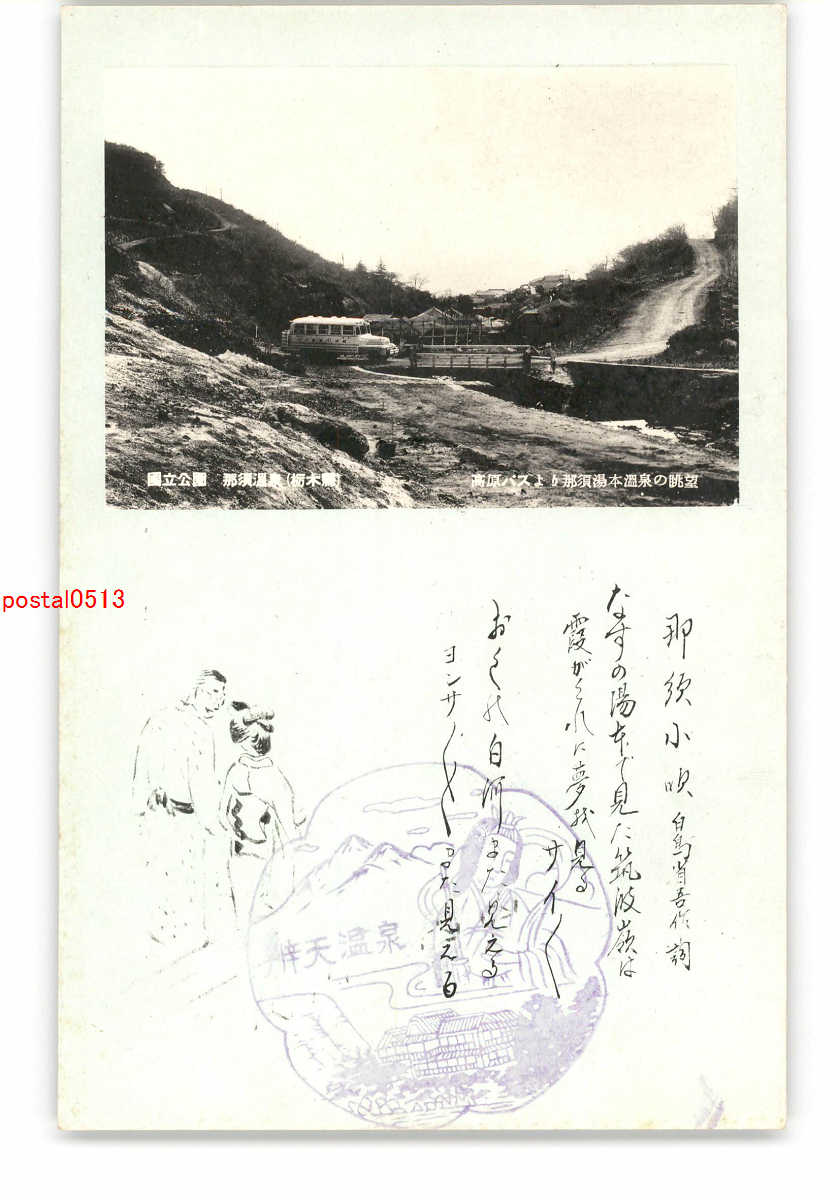 國立公園 那須溫泉(栃木縣)
高原バスより那須湯本溫泉の眺望
postal0513
那須小唄 白鳥省吾作詞
なすの湯本で見た筑波嶺は
霞がくれに夢に見る
サイ〱
おくの白河また見える
ヨンサノ〱また見える
辨天温泉